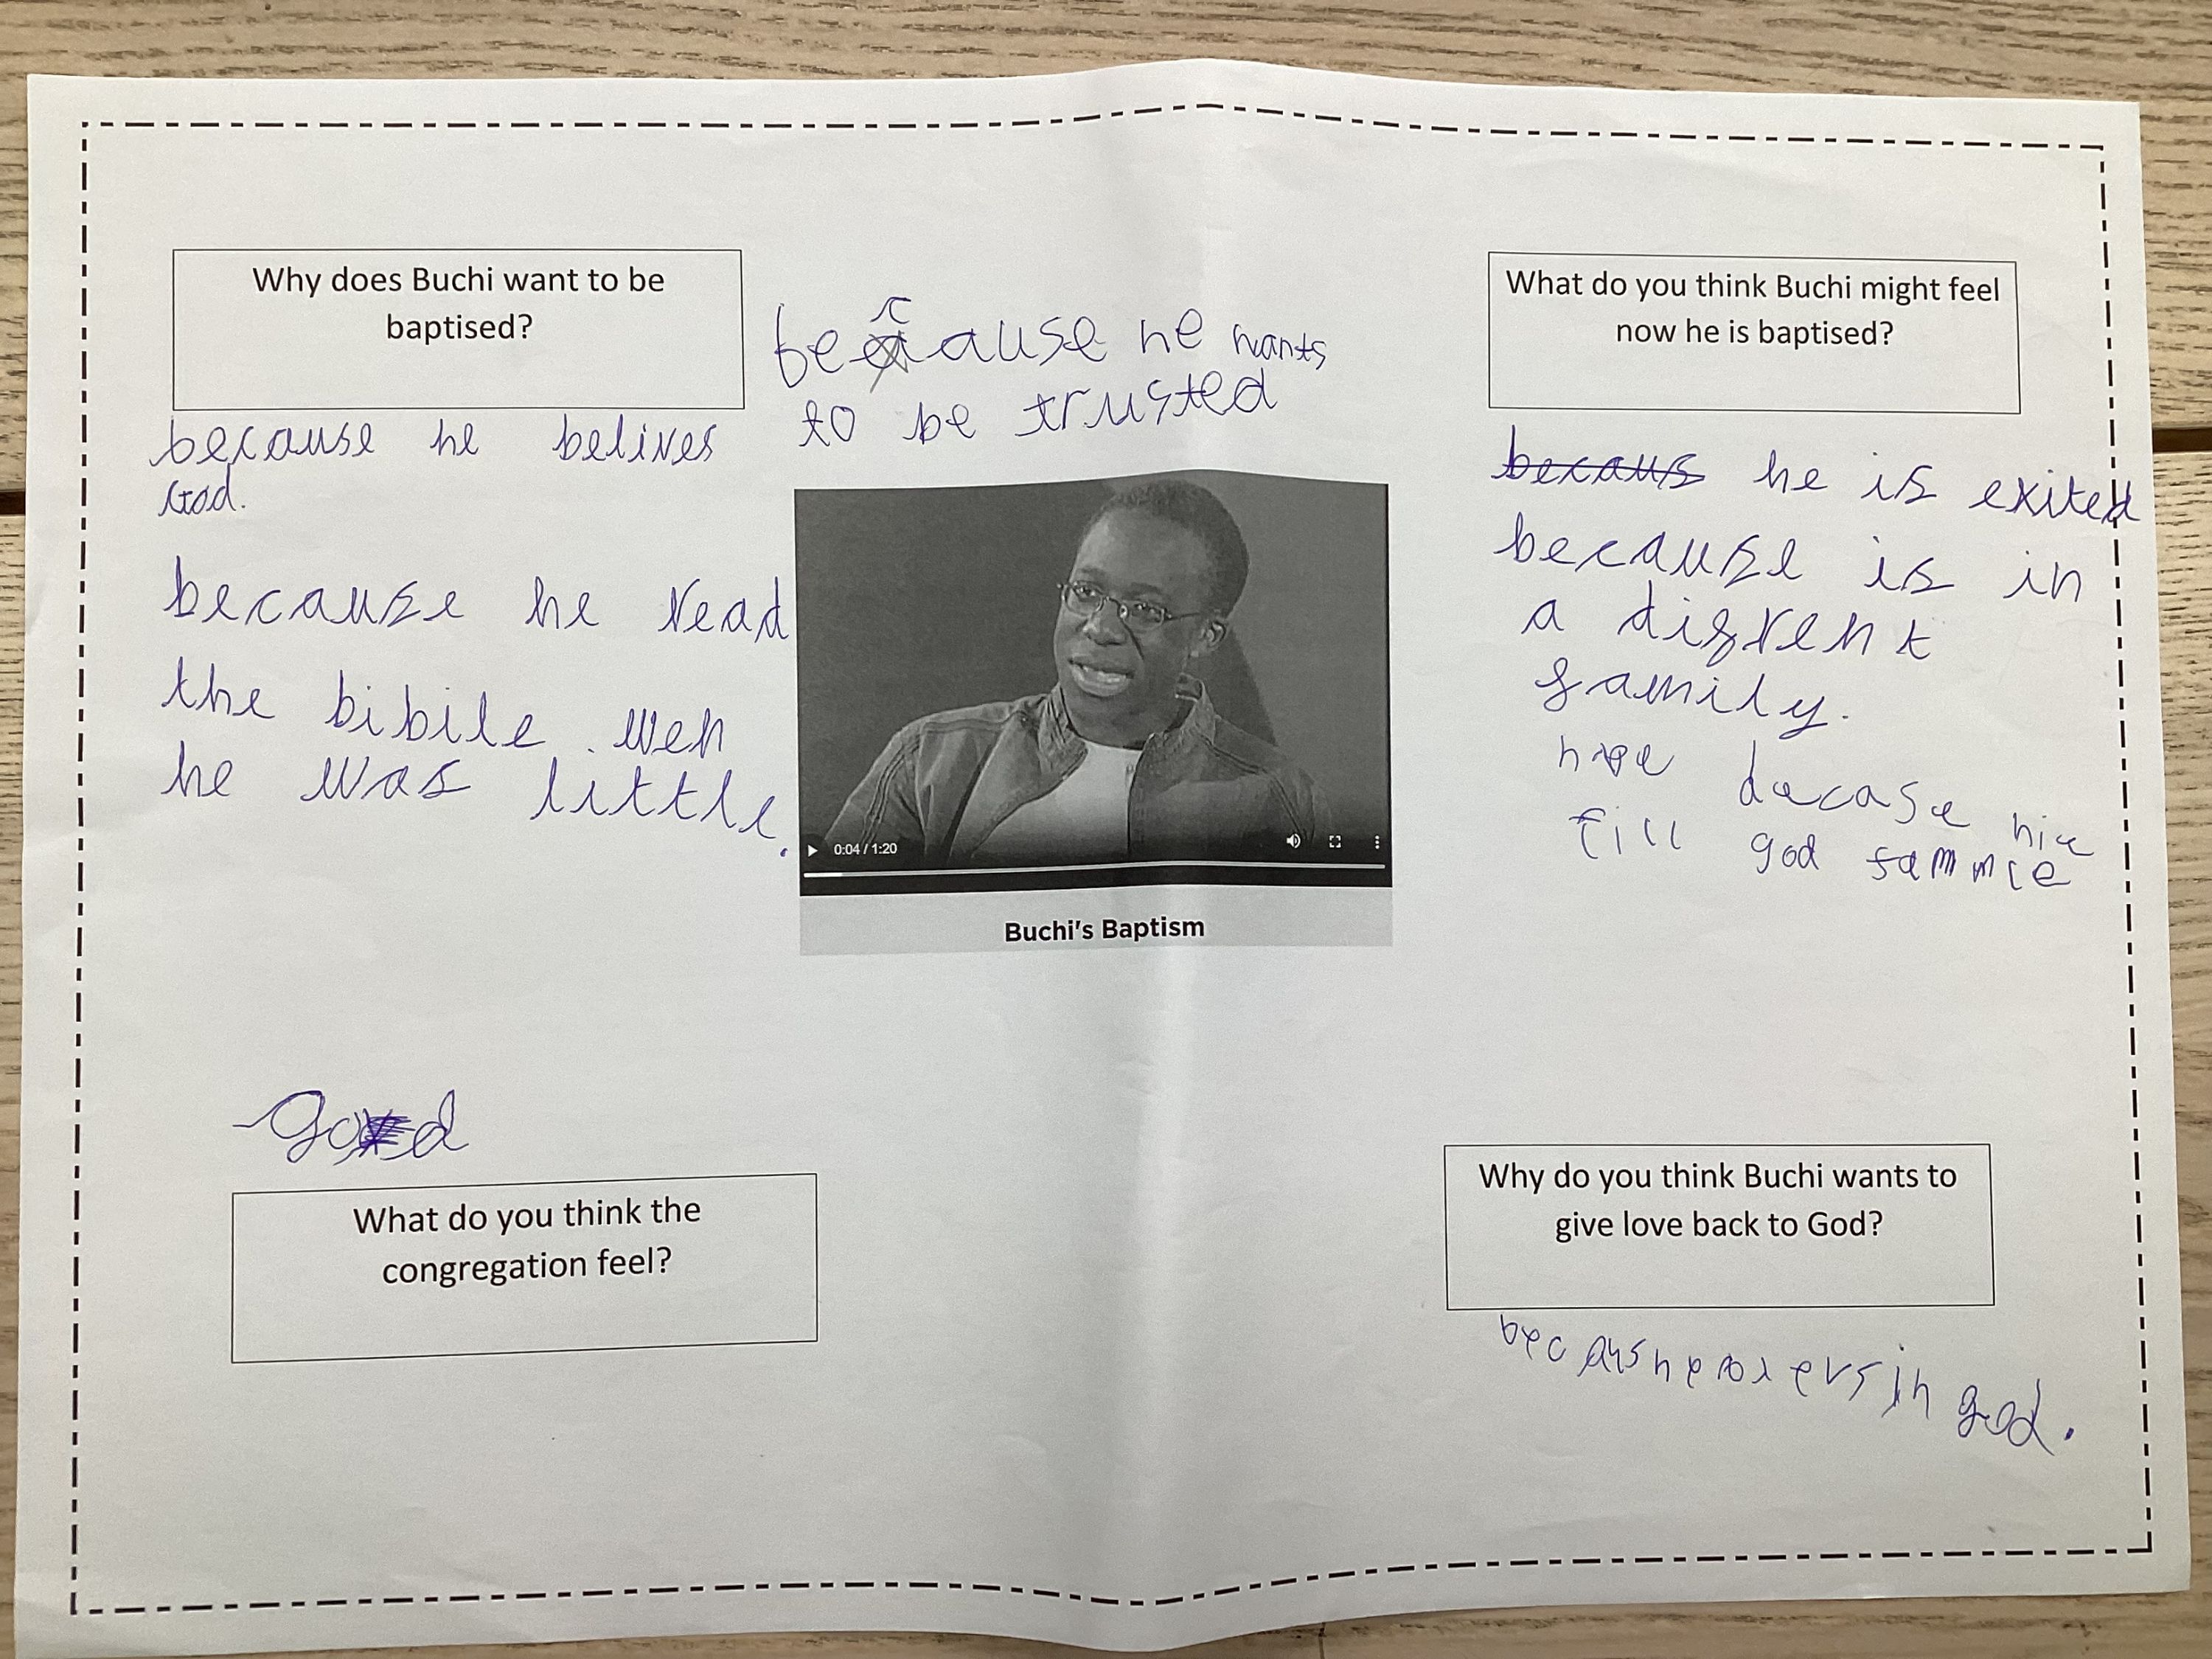 Why does Buchi want to be
baptised?
because he belives
God.
because he read
the bibile wen
he was little.
because he wants
to be trusted
0:04 / 1:20
Buchi's Baptism
What do you think Buchi might feel
now he is baptised?
becaus he is exited
because is in
a difrent
family.
dacase hie
fill god fammle
good
What do you think the
congregation feel?
Why do you think Buchi wants to
give love back to God?
in god.